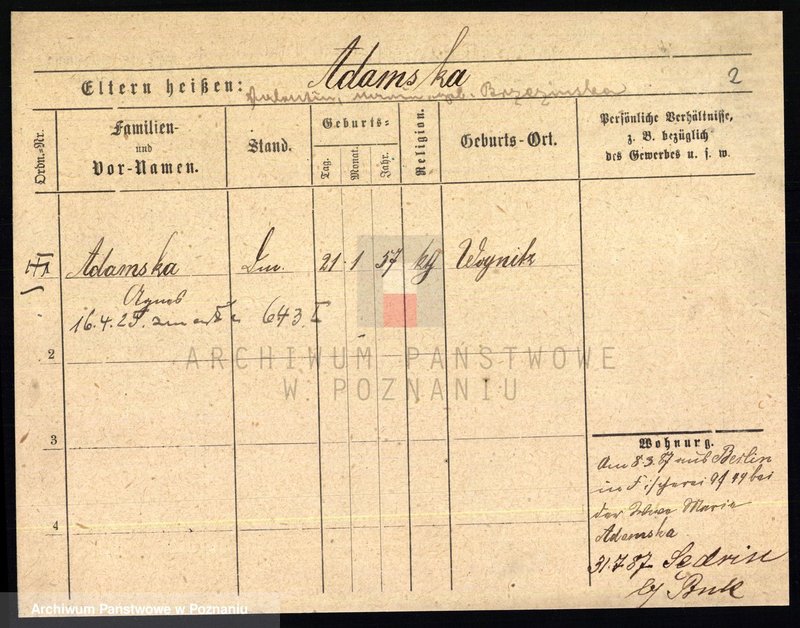 Adamska
2
Eltern heißen:
Brzezinska
Ordn.-Nr.
Familien-
und
Vor-Namen.
Stand.
Geburts-
Tag.
Monat.
Jahr.
Religion.
Geburts-Ort.
Persönliche Verhältnisse,
z. B. bezüglich
des Gewerbes u. s. w.
Adamska
21
1
57
Woynitz
Agnes
16.4.25.
643
2
ARCHIWUM PAŃSTWOWE
W POZNANIU
3
4
Wohnung.
Am 8.3.87 aus Berlin
in Fischerei bei
der Wwe Marie
Adamska
31.7.87
b/ Buk
Archiwum Państwowe w Poznaniu